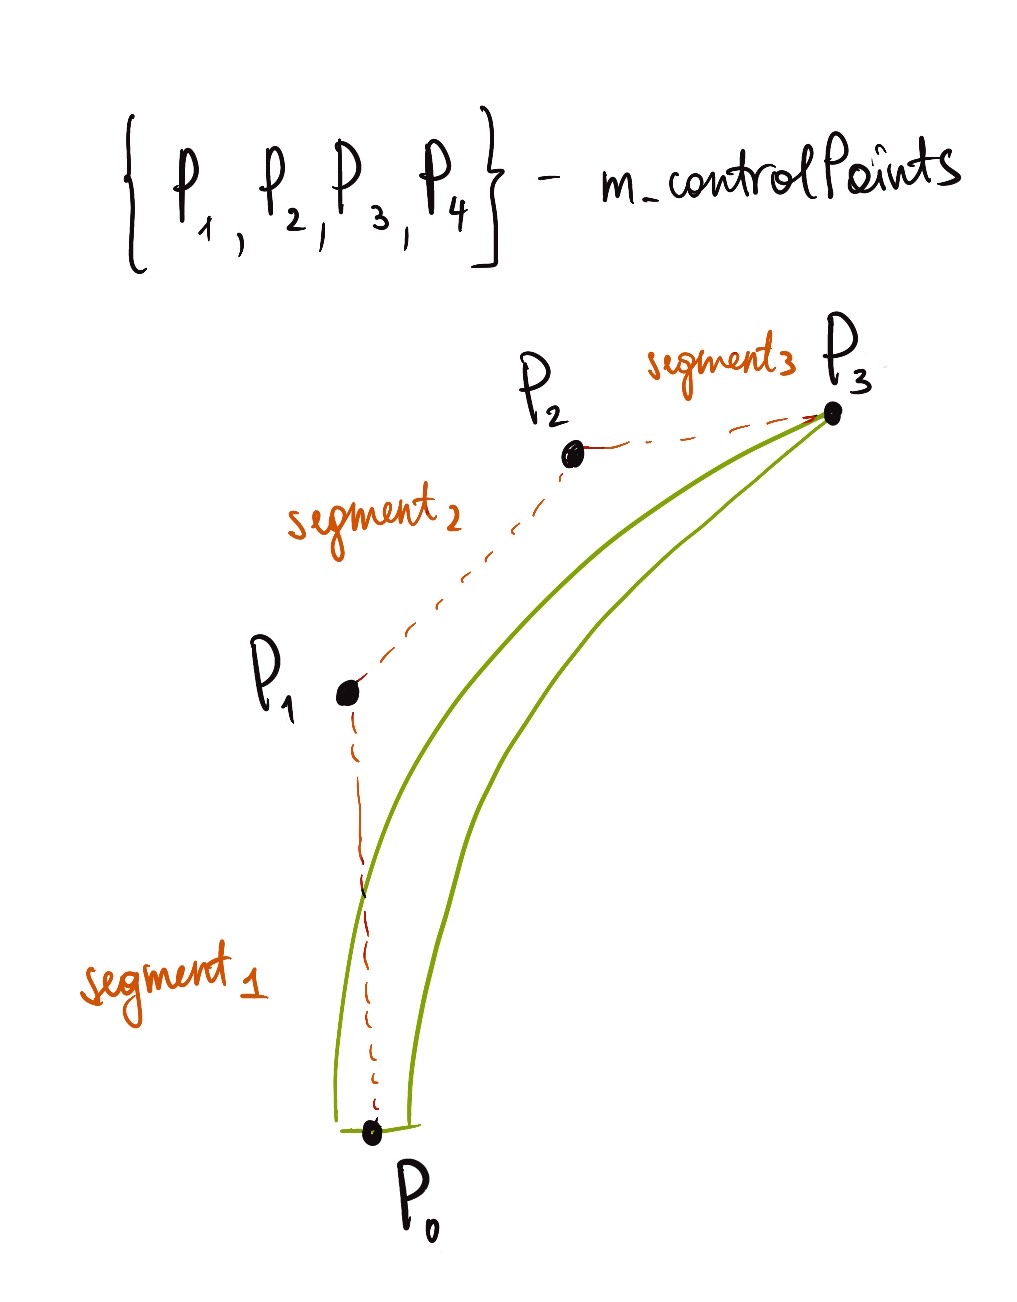 { P1, P2, P3, P4 } - m_controlPoints
segment3 P3
P2
segment2
P1
segment1
P0